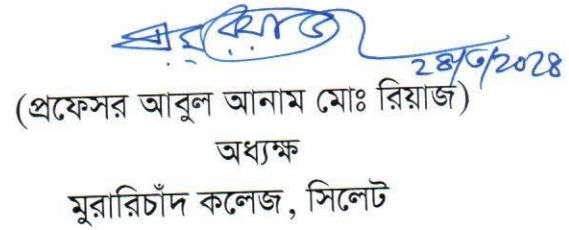 (প্রফেসর আবুল আনাম মোঃ রিয়াজ)
অধ্যক্ষ
মুরারিচাঁদ কলেজ, সিলেট